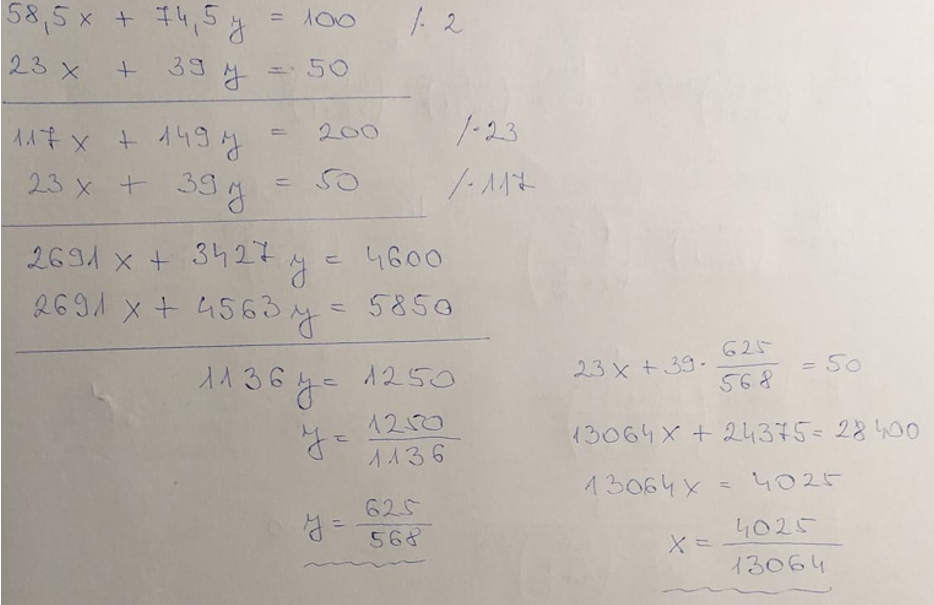 58,5x + 74,5y = 100 /·2
23x + 39y = 50
117x + 149y = 200 /·23
23x + 39y = 50 /·117
2691x + 3427y = 4600
2691x + 4563y = 5850
1136y = 1250
y = 1250/1136
y = 625/568
23x + 39·625/568 = 50
13064x + 24375 = 28400
13064x = 4025
x = 4025/13064